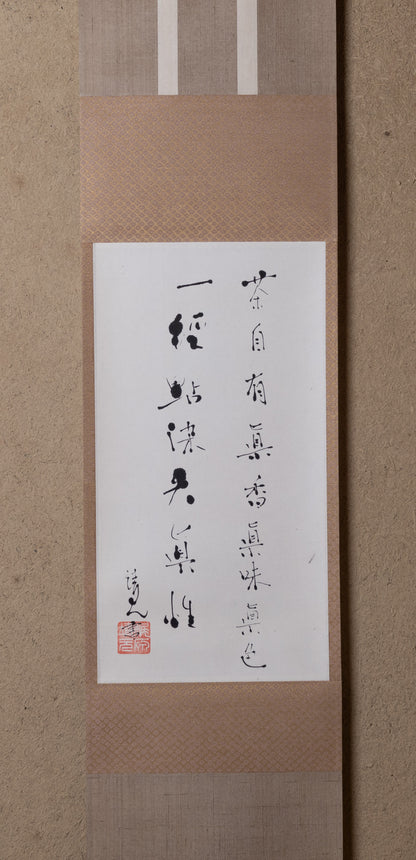 茶自有眞香眞味眞色
一經點染失眞性